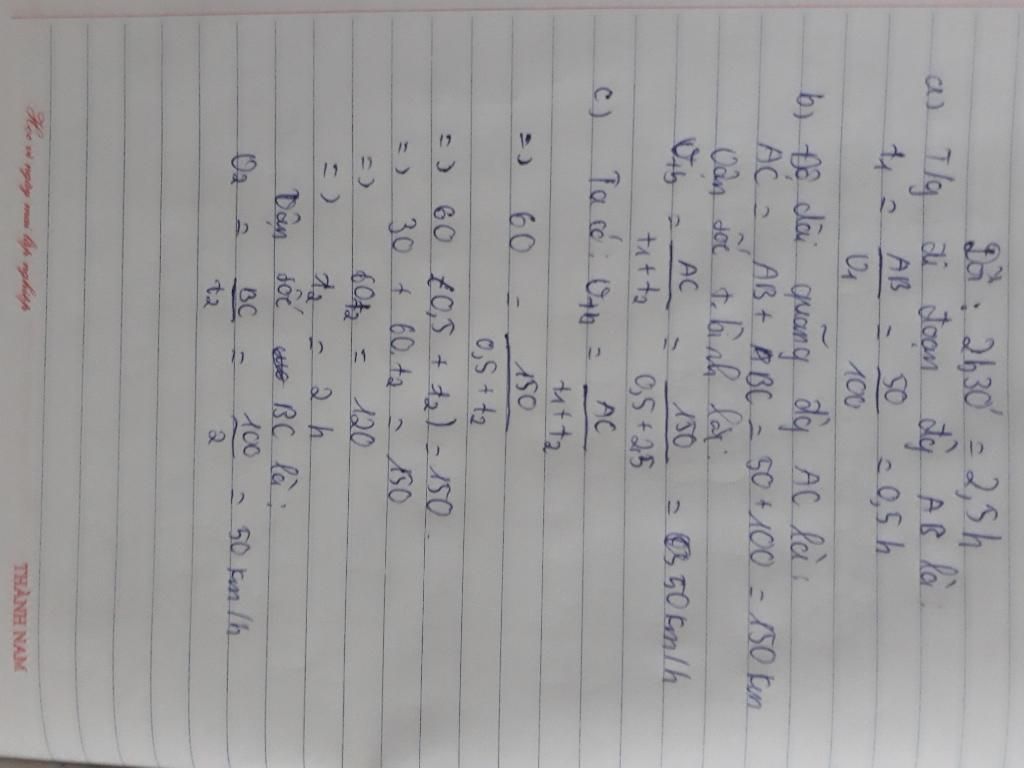 Đổi : 2h30' = 2,5h
a) T/g đi đoạn đg AB là
t1 = AB/v1 = 50/100 = 0,5h
b) Độ dài quãng đg AC là :
AC = AB + BC = 50 + 100 = 150 km
Vận tốc t.bình là :
vtb = AC/t1 + t2 = 150/0,5 + 2,5 = 50 km/h
c) Ta có : vtb = AC/t1 + t2
=> 60 = 150/0,5 + t2
=> 60 (0,5 + t2) = 150.
=> 30 + 60.t2 = 150
=> 60t2 = 120
=> t2 = 2 h
Vận tốc BC là :
v2 = BC/t2 = 100/2 = 50 km/h
THÀNH NAM